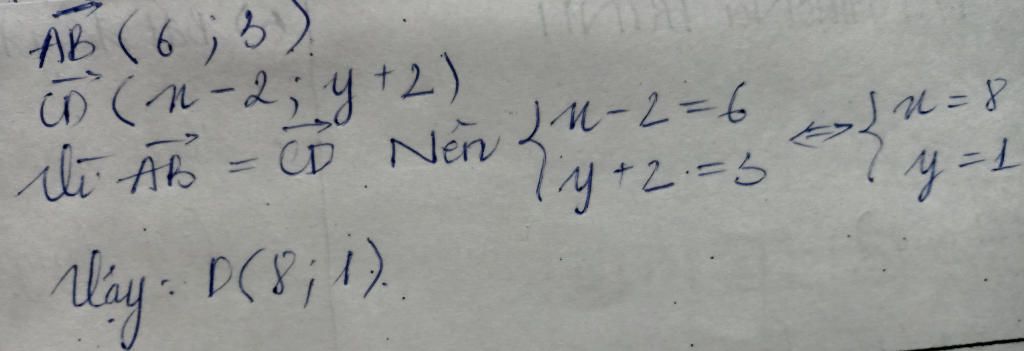 AB→ (6 ; 3).
CD→ (x - 2 ; y + 2)
Vì AB→ = CD→ Nên { x - 2 = 6 ⇔ { x = 8
y + 2 = 3 y = 1
Vậy: D(8 ; 1).